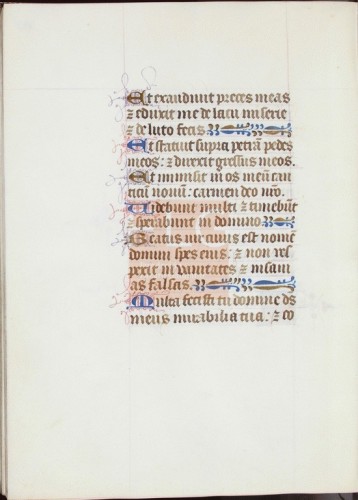 Et exaudivit preces meas
⁊ eduxit me de lacu miserie
⁊ de luto fecis
Et statuit supra petram pedes
meos: ⁊ direxit gressus meos.
Et inmisit in os meū can
ticū novū: carmen deo nr̄o.
Videbunt multi ⁊ timebūt
⁊ sperabunt in domino
Beatus vir cuius est nomē
domini spes eius: ⁊ non res
pexit in vanitates ⁊ insani
as falsas.
Multa fecisti tu domine ds
meus mirabilia tua: ⁊ co